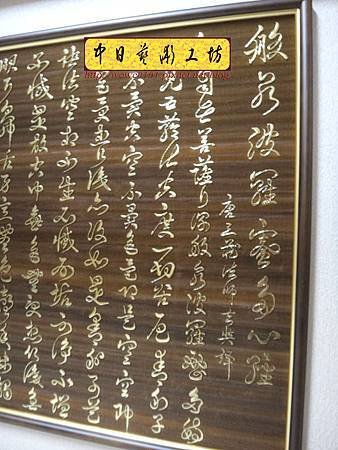 中日藝雕工坊
般若波羅蜜多心經
唐三藏法師玄奘譯
自在菩薩行深般若波羅蜜多時
見五蘊皆空度一切苦厄舍利子
不異空空不異色色即是空空即
色受想行識亦復如是舍利子是
諸法空相不生不滅不垢不淨不增
不減是故空中無色無受想行識無
眼耳鼻舌身意無色聲香味觸